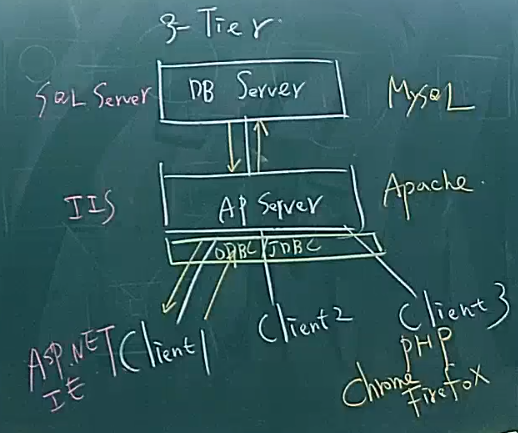 3-Tier
SQL Server
DB Server
MySQL
IIS
AP Server
Apache
ODBC/JDBC
Client1
Client2
Client3
ASP.NET
IE
PHP
Chrome
Firefox